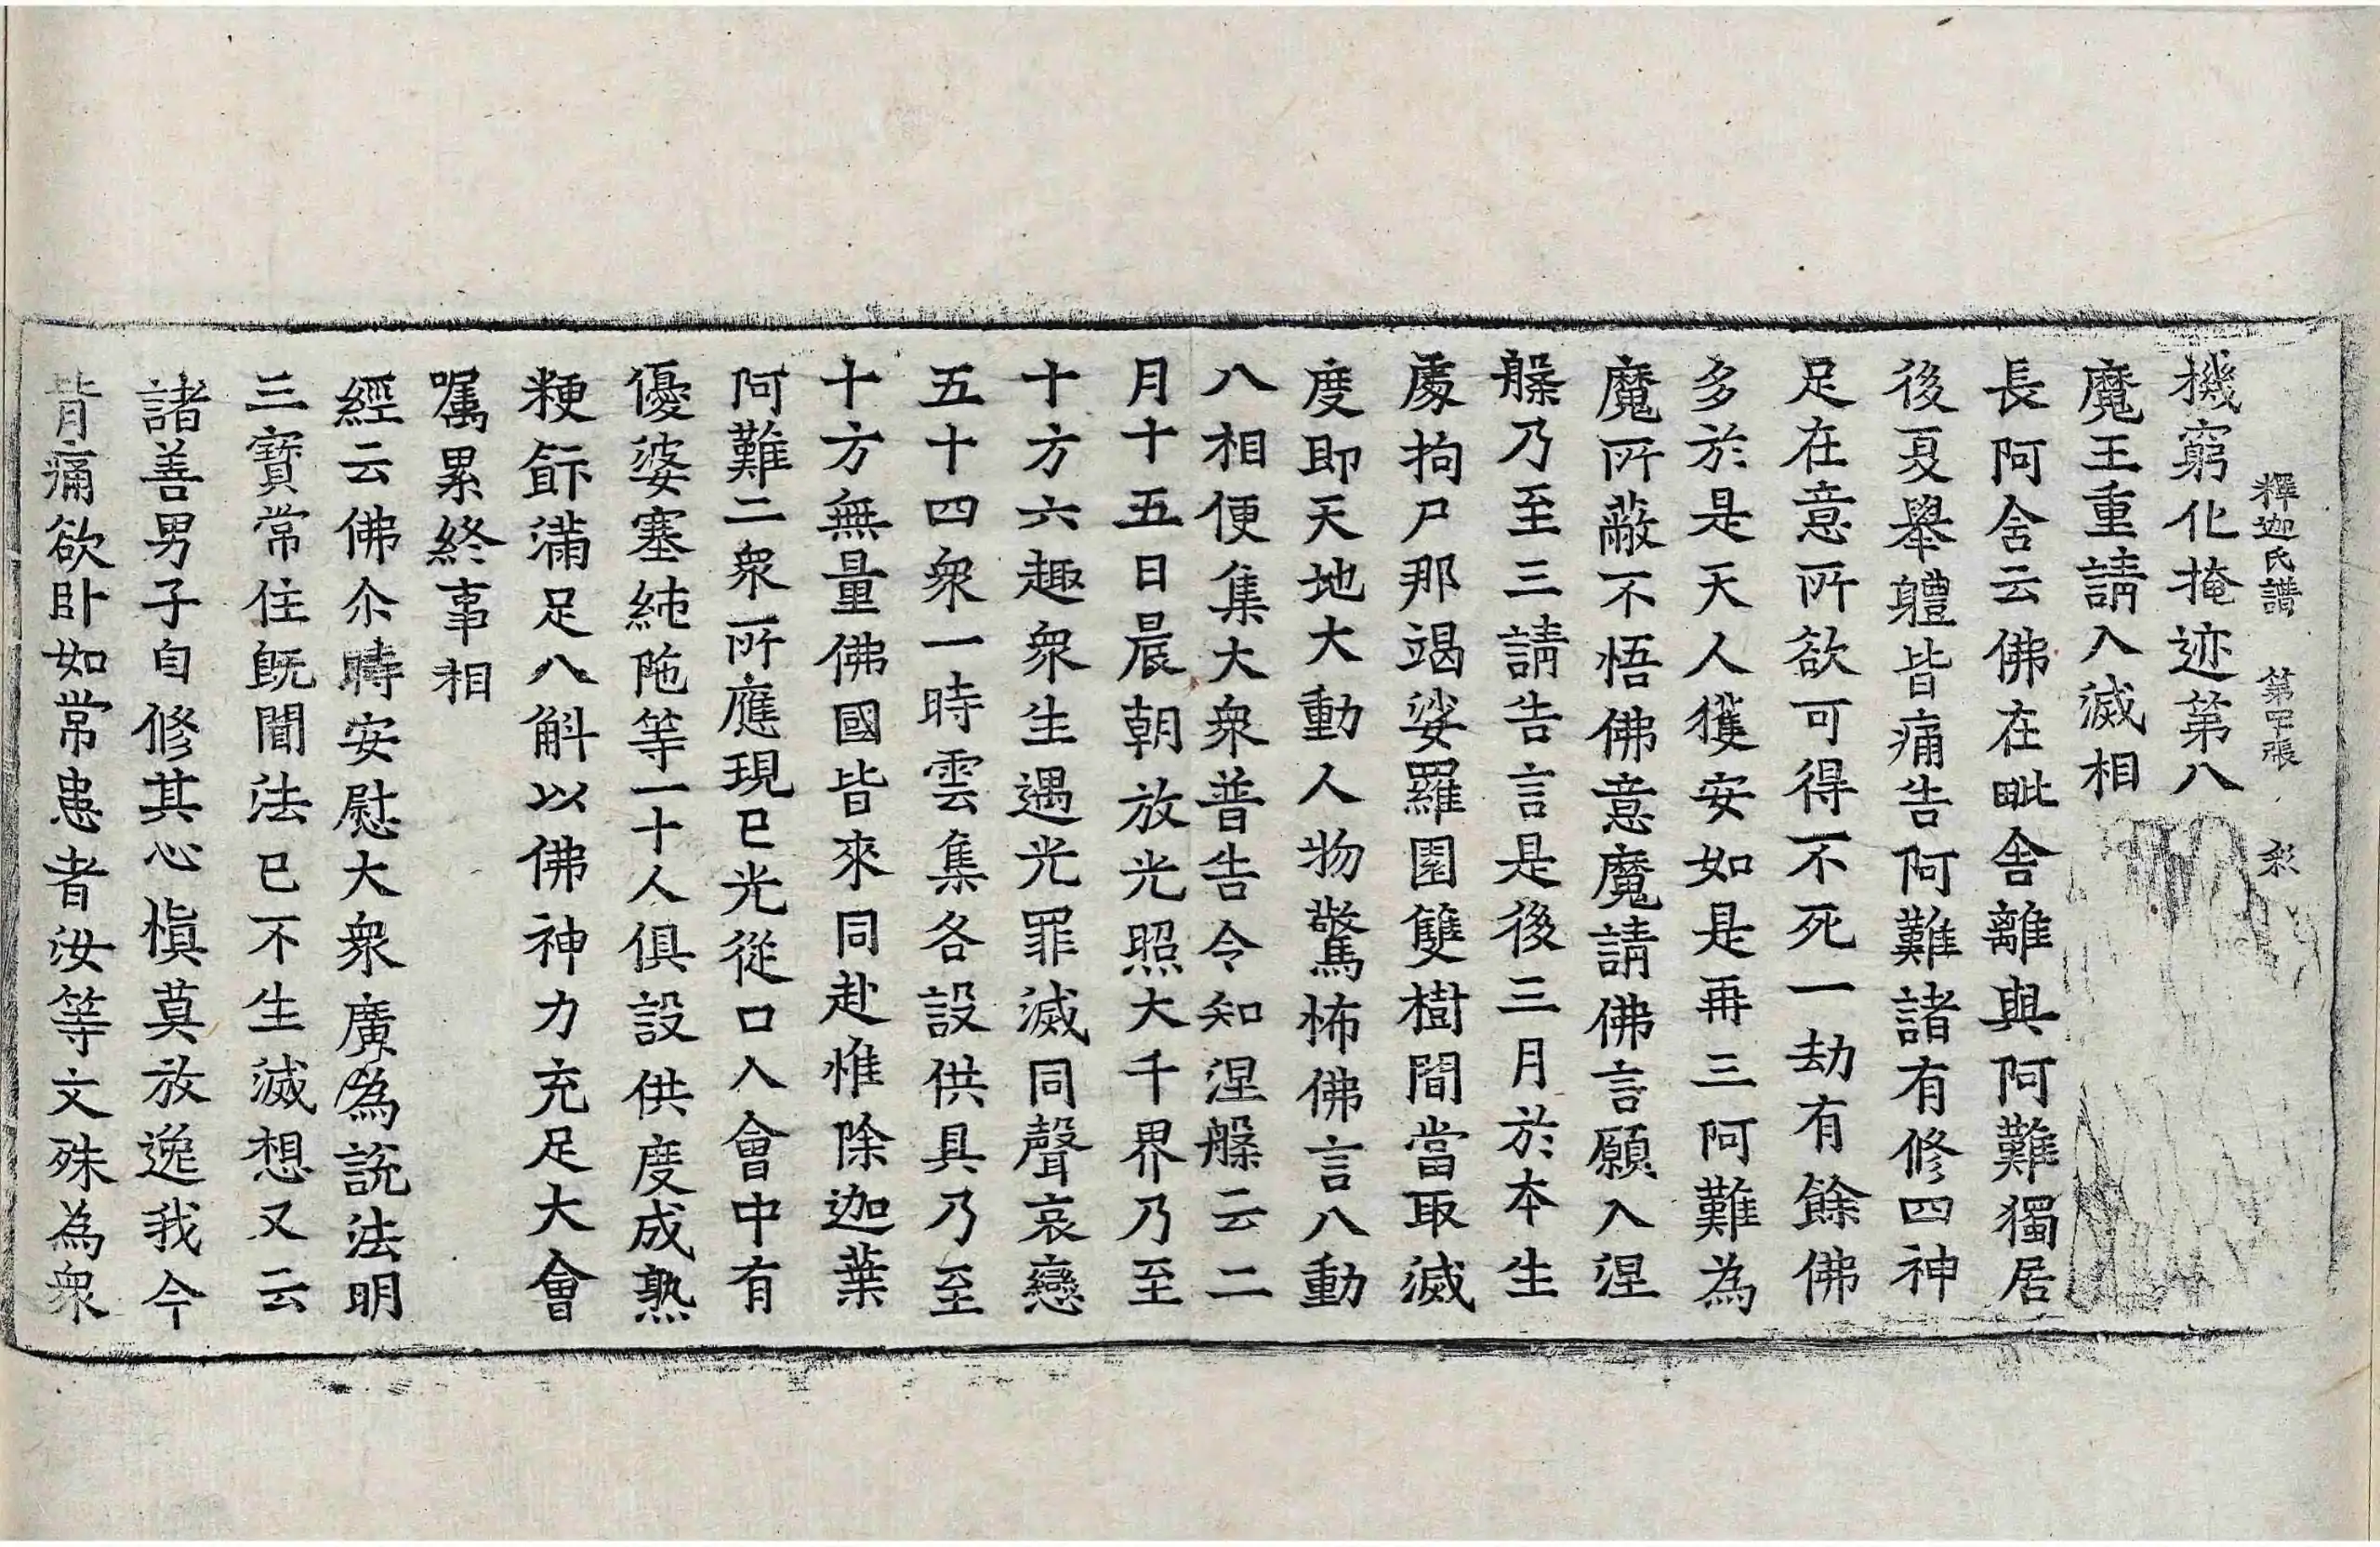 釋迦氏譜 第四十張 彩
機窮化掩迹第八
魔王重請入滅相
長阿含云佛在毗舍離與阿難獨居
後夏舉軆皆痛告阿難諸有修四神
足在意所欲可得不死一劫有餘佛
多於是天人獲安如是再三阿難為
魔所蔽不悟佛意魔請佛言願入涅
槃乃至三請告言是後三月於本生
處拘尸那竭娑羅園雙樹間當取滅
度即天地大動人物驚怖佛言八動
八相便集大衆普告令知涅槃云二
月十五日晨朝放光照大千界乃至
十方六趣衆生遇光罪滅同聲哀戀
五十四衆一時雲集各設供具乃至
十方無量佛國皆來同赴惟除迦葉
阿難二衆所應現已光從口入會中有
優婆塞純陁等一十人俱設供度成熟
粳飰滿足八斛以佛神力充足大會
囑累終事相
經云佛尒時安慰大衆廣為說法明
三寶常住旣聞法已不生滅想又云
諸善男子自修其心慎莫放逸我今
背痛欲卧如常患者汝等文殊為衆